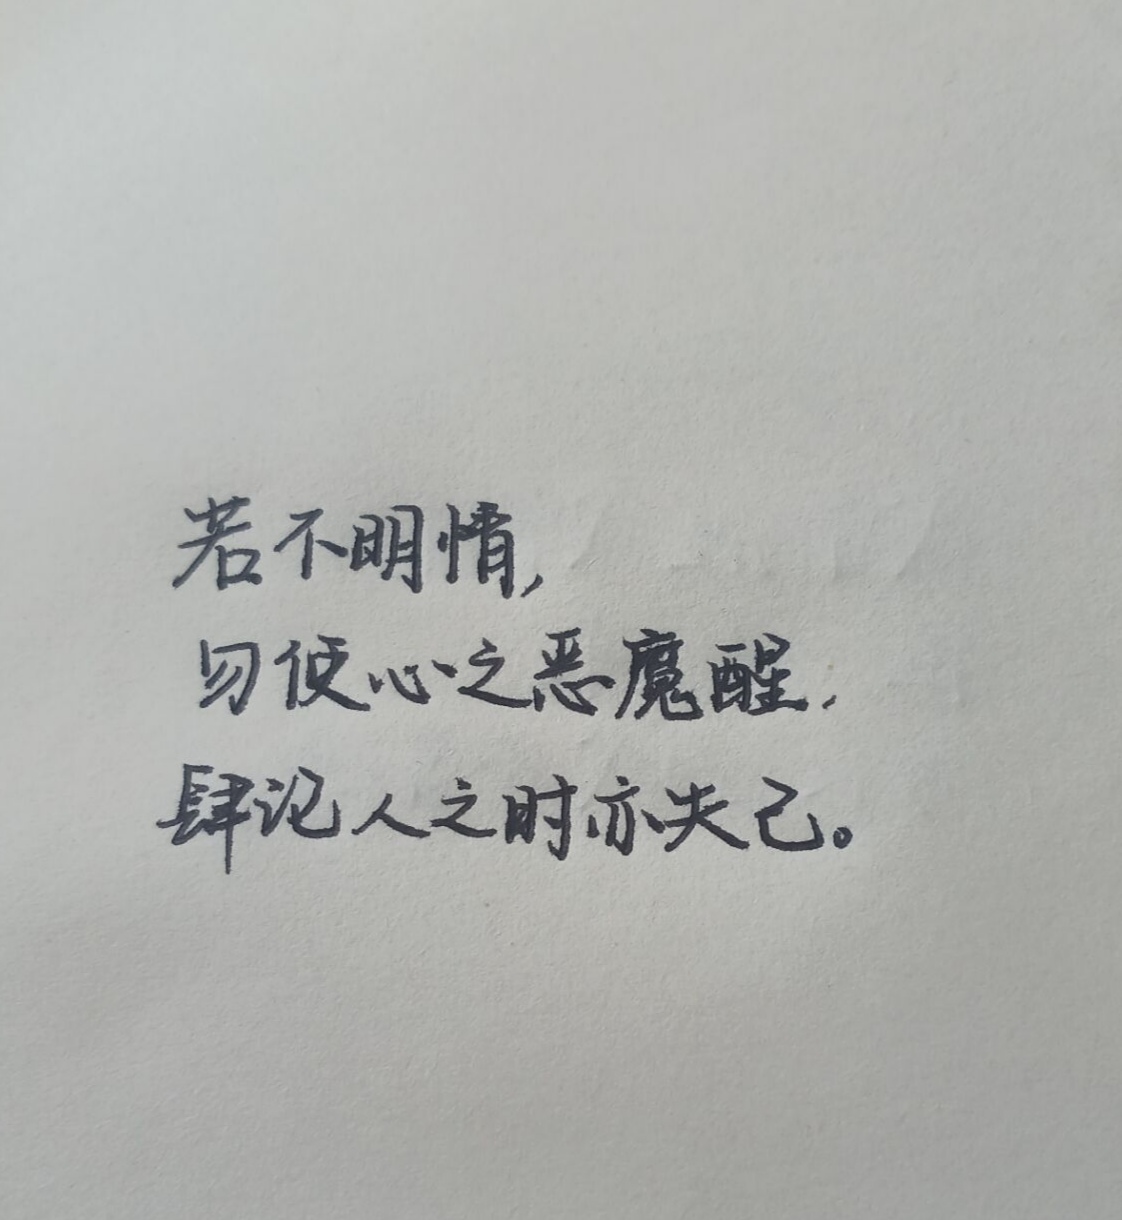 若不明情，
勿使心之恶魔醒，
肆论人之时亦失己。